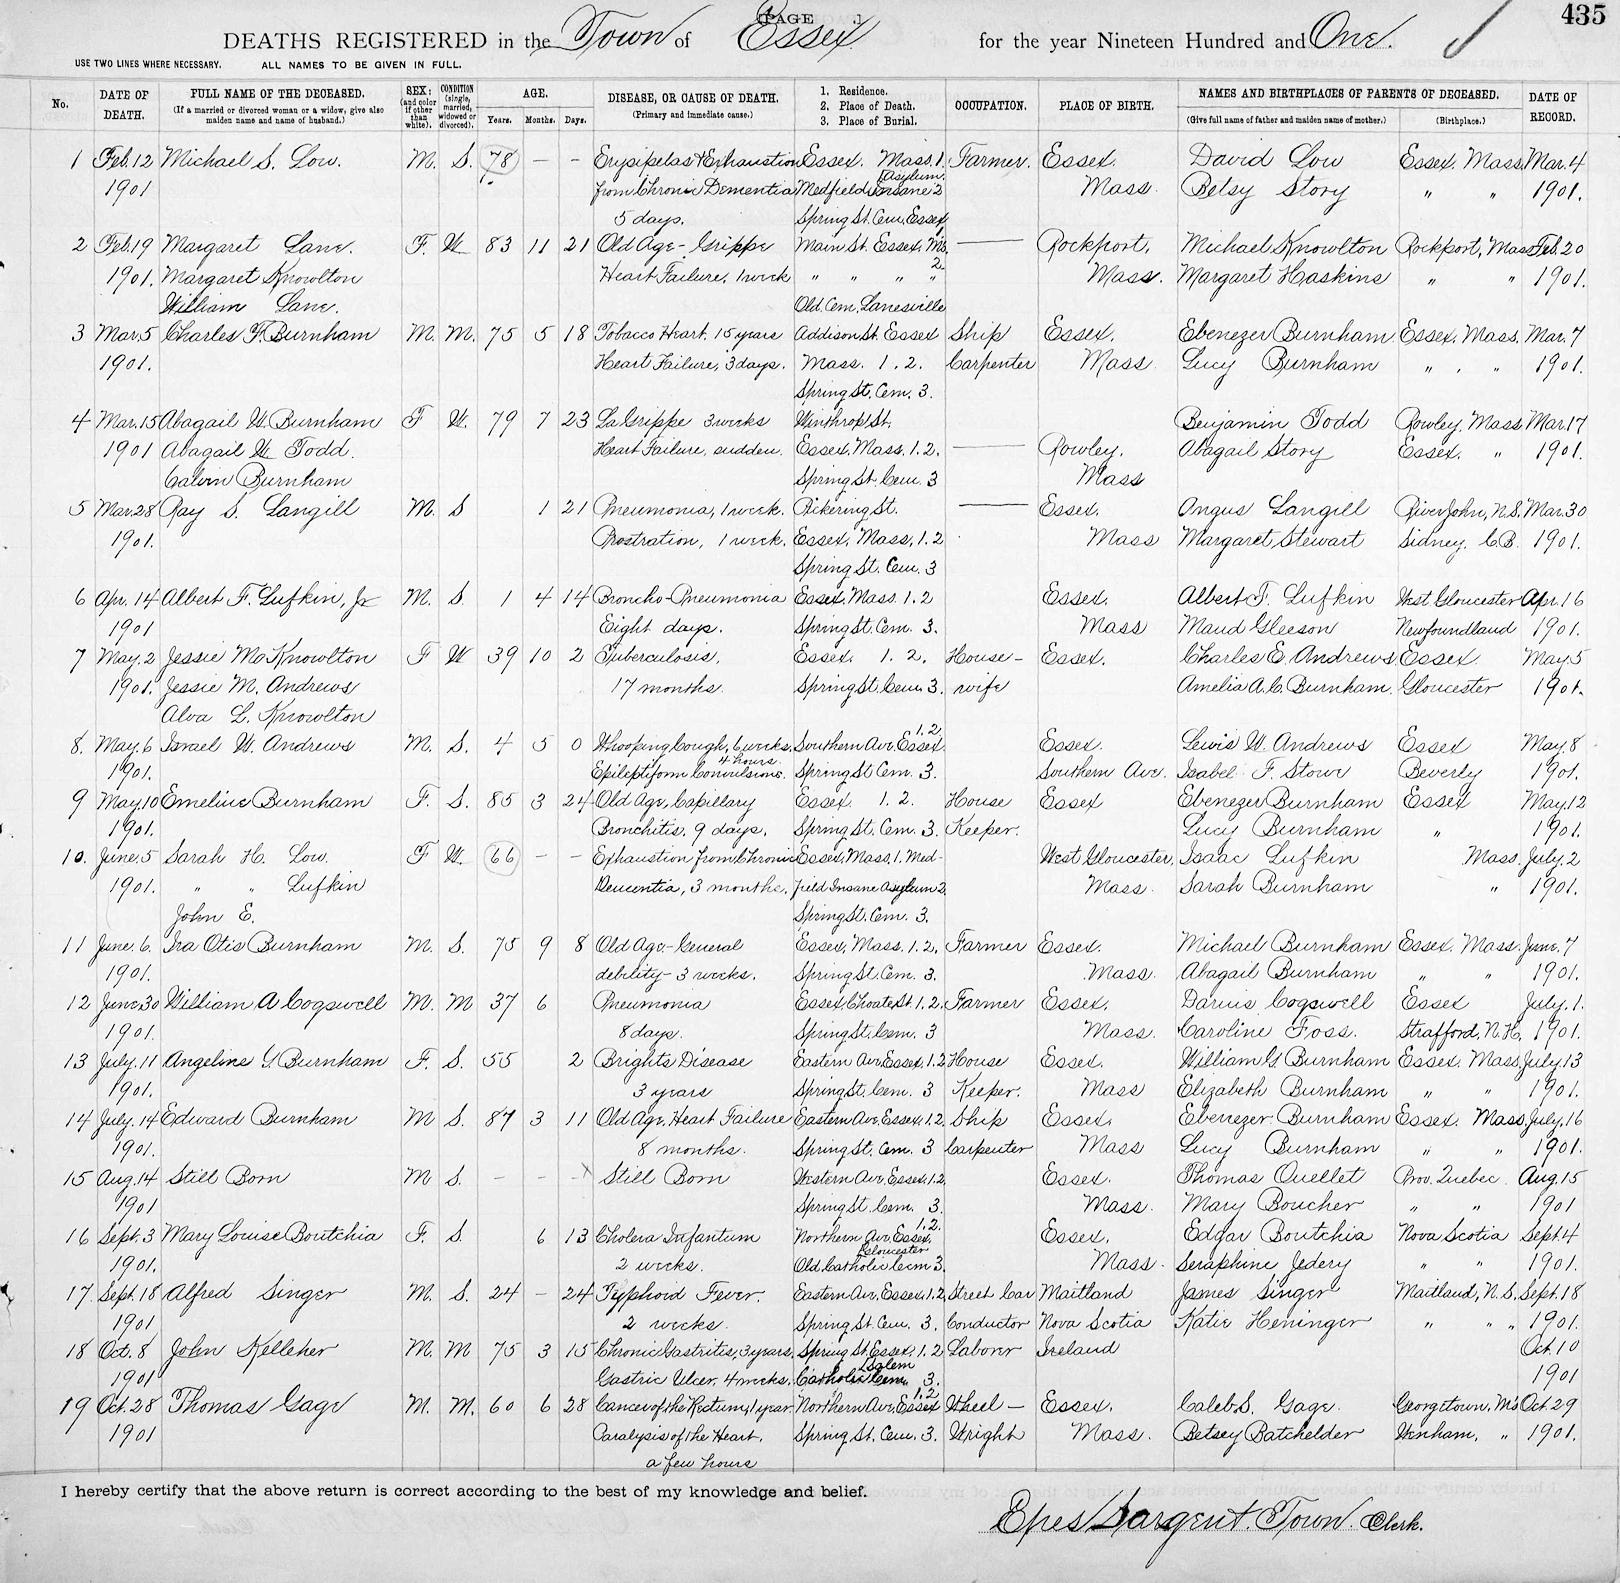 (PAGE .)
435
DEATHS REGISTERED in the Town of Essex for the year Nineteen Hundred and One.
USE TWO LINES WHERE NECESSARY. ALL NAMES TO BE GIVEN IN FULL.
No. DATE OF DEATH. FULL NAME OF THE DECEASED. (If a married or divorced woman or a widow, give also maiden name and name of husband.) SEX: (and color if other than white). CONDITION (single, married, widowed or divorced). AGE. Years. Months. Days. DISEASE, OR CAUSE OF DEATH. (Primary and immediate cause.) 1. Residence. 2. Place of Death. 3. Place of Burial. OCCUPATION. PLACE OF BIRTH. NAMES AND BIRTHPLACES OF PARENTS OF DECEASED. (Give full name of father and maiden name of mother.) (Birthplace.) DATE OF RECORD.
1 Feb. 12 Michael S. Low. M. S. 78 – – Erysipelas & Exhaustion Essex. Mass. 1. Farmer. Essex. David Low Essex. Mass. Mar. 4
1901 from Chronic Dementia Medfield Insane Asylum. 2 Mass. Betsy Story " " 1901.
5 days. Spring St. Cem. Essex,
2 Feb. 19 Margaret Lane. F. W. 83 11 21 Old Age – Grippe Main St. Essex, Ms. 1 —— Rockport, Michael Knowlton Rockport, Mass Feb. 20
1901. Margaret Knowlton Heart Failure, 1 week " " " " 2. Mass. Margaret Haskins " " 1901.
William Lane. Old Cem. Lanesville
3 Mar. 5 Charles F. Burnham M. M. 75 5 18 Tobacco Heart. 15 years Addison St. Essex Ship Essex. Ebenezer Burnham Essex. Mass. Mar. 7
1901. Heart Failure, 3 days. Mass. 1. 2. Carpenter Mass Lucy Burnham " " 1901.
Spring St. Cem. 3.
4 Mar. 15 Abagail W. Burnham F W. 79 7 23 La Grippe 3 weeks Winthrop St. Benjamin Todd Rowley. Mass Mar. 17
1901 Abagail W. Todd. Heart Failure, sudden. Essex. Mass. 1. 2. —— Rowley. Abagail Story Essex. " 1901.
Calvin Burnham Spring St. Cem. 3 Mass
5 Mar. 28 Ray S. Langill M. S 1 21 Pneumonia, 1 week. Pickering St. —— Essex. Angus Langill River John, N.S. Mar. 30
1901. Prostration, 1 week. Essex, Mass, 1. 2 Mass Margaret Stewart Sidney. C.B. 1901.
Spring St. Cem. 3
6 Apr. 14 Albert F. Lufkin, Jr M. S. 1 4 14 Broncho-Pneumonia Essex, Mass. 1. 2 Essex. Albert F. Lufkin West Gloucester Apr. 16
1901 Eight days. Spring St. Cem. 3. Mass Maud Gleeson Newfoundland 1901.
7 May. 2 Jessie M. Knowlton F W 39 10 2 Tuberculosis. Essex. 1. 2. House- Essex. Charles E. Andrews Essex May. 5
1901. Jessie M. Andrews 17 months. Spring St. Cem. 3. wife Amelia A. C. Burnham. Gloucester 1901.
Alva L. Knowlton
8. May. 6 Israel W. Andrews M. S. 4 5 0 Whooping Cough, 6 weeks, Southern Av. Essex. 1. 2. Essex. Lewis W. Andrews Essex May. 8
1901. Epileptiform Convulsions. 4 hours. Spring St Cem. 3. Southern Ave. Isabel F. Stowe Beverly 1901.
9 May 10 Emeline Burnham F. S. 85 3 24 Old Age, Capillary Essex. 1. 2. House Essex Ebenezer Burnham Essex May. 12
1901. Bronchitis. 9 days. Spring St. Cem. 3. Keeper. Lucy Burnham " 1901.
10. June. 5 Sarah H. Low. F W. 66 – – Exhaustion from Chronic Essex, Mass, 1. Med- West Gloucester, Isaac Lufkin Mass. July. 2
1901. " " Lufkin Dementia, 3 months. field Insane Asylum 2. Mass. Sarah Burnham " 1901.
John E. Spring St. Cem. 3.
11 June. 6. Ira Otis Burnham M. S. 75 9 8 Old Age – General Essex, Mass. 1. 2. Farmer Essex. Michael Burnham Essex. Mass. June. 7
1901. debility – 3 weeks. Spring St. Cem. 3. Mass. Abagail Burnham " " 1901.
12 June 30 William A Cogswell M. M 37 6 Pneumonia Essex, Choate St. 1. 2. Farmer Essex. Darius Cogswell Essex July. 1.
1901. 8 days. Spring St. Cem. 3 Mass. Caroline Foss. Strafford, N.H. 1901.
13 July. 11 Angeline G. Burnham F. S. 55 2 Brights Disease Eastern Av. Essex. 1. 2 House Essex. William G. Burnham Essex. Mass. July 13
1901. 3 years Spring St. Cem. 3 Keeper. Mass Elizabeth Burnham " " 1901.
14 July. 14 Edward Burnham M S. 87 3 11 Old Age, Heart Failure Eastern Av. Essex. 1. 2 Ship Essex. Ebenezer Burnham Essex. Mass. July. 16
1901. 8 months. Spring St. Cem. 3 Carpenter Mass Lucy Burnham " " 1901.
15 Aug. 14 Still Born M S. – – – Still Born Western Av. Essex. 1. 2. Essex. Thomas Ouellet Prov. Quebec. Aug. 15
1901 Spring St. Cem. 3. Mass. Mary Boucher " " 1901
16 Sept. 3 Mary Louise Boutchia F. S. 6 13 Cholera Infantum Northern Av. Essex. 1. 2. Essex. Edgar Boutchia Nova Scotia Sept. 4
1901. 2 weeks. Old Catholic Cem 3. Gloucester Mass. Seraphine Jedery " " 1901.
17. Sept. 18 Alfred Singer M. S. 24 – 24 Typhoid Fever. Eastern Av. Essex. 1. 2. Street Car Maitland James Singer Maitland, N.S. Sept. 18
1901 2 weeks. Spring St. Cem. 3. Conductor Nova Scotia Katie Heninger " " " 1901.
18 Oct. 8 John Kelleher M. M 75 3 15 Chronic Gastritis, 3 years, Spring St. Essex, 1. 2 Laborer Ireland Oct. 10
1901 Gastric Ulcer. 4 weeks. Catholic Cem. Salem 3. 1901
19 Oct. 28 Thomas Gage M. M. 60 6 28 Cancer of the Rectum, 1 year Northern Av. Essex 1. 2 Wheel- Essex. Caleb S. Gage. Georgetown, Ms Oct. 29
1901 Paralysis of the Heart. Spring St. Cem. 3. Wright Mass. Betsey Batchelder Wenham, " 1901.
a few hours
I hereby certify that the above return is correct according to the best of my knowledge and belief.
Epes Sargent. Town Clerk.